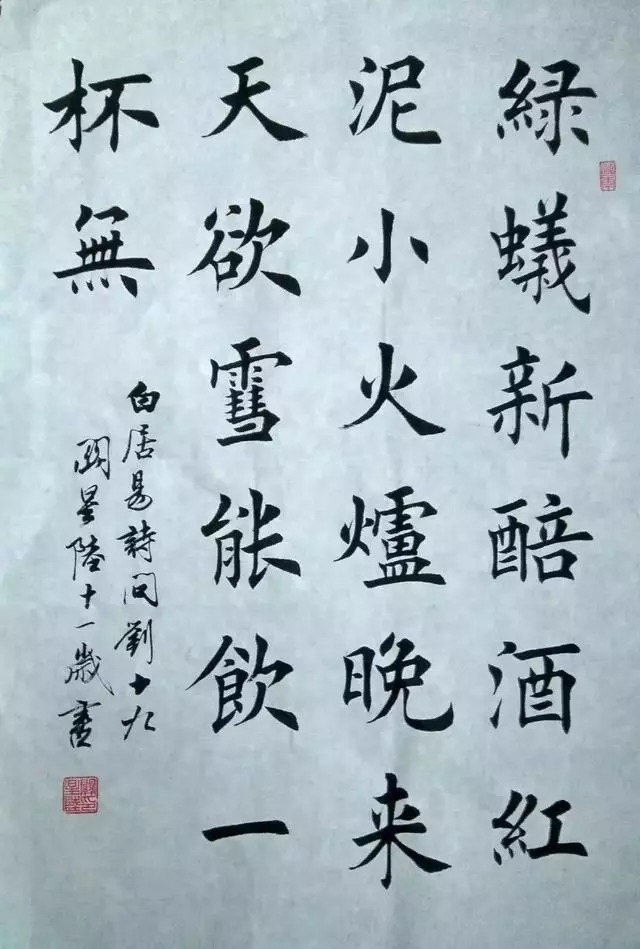 緑蟻新醅酒紅
泥小火爐晚来
天欲雪能飲一
杯無
白居易詩問劉十九
星陸十一歲書